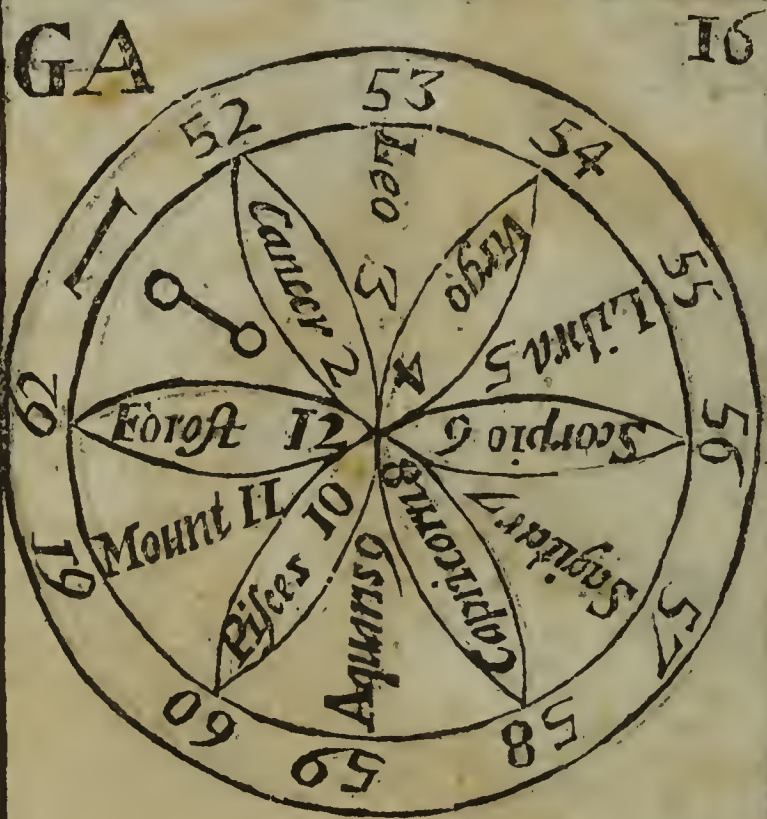 GA
16
52
53
54
55
56
57
58
59
60
19
62
Cancer 2
Leo 3
Virgo 4
Libra 5
Scorpio 6
Sagitar 7
Capricorn 8
Aquarıs 9
Piſces 10
Mount II
Foroſt 12